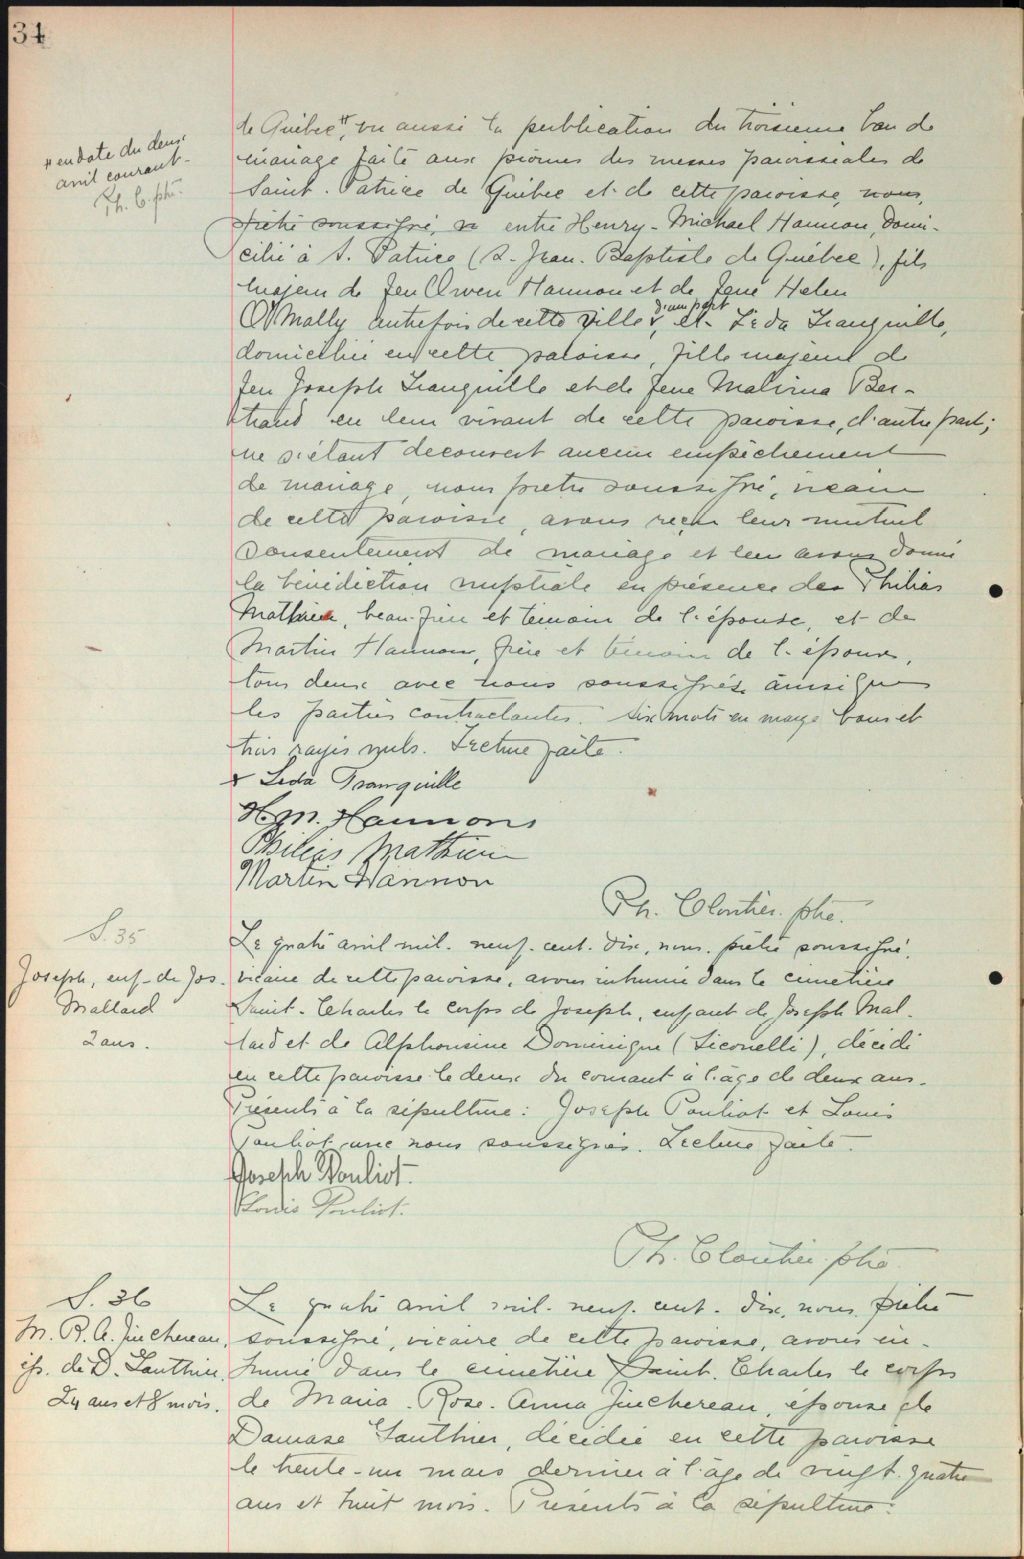 34
# en date du deux
avril courant.
Ph. C. ptre.
de Québec #, vu aussi la publication du troisième ban de
mariage faite aux prônes des messes paroissiales de
Saint-Patrice de Québec et de cette paroisse, nous,
prêtre soussigné, entre Henry-Michael Hannon, domi-
cilié à S. Patrice (S. Jean-Baptiste de Québec), fils
majeur de feu Owen Hannon et de feue Helen
O'Mally autrefois de cette ville, d'une part, et Léda Tranquille,
domiciliée en cette paroisse, fille majeure de
feu Joseph Tranquille et de feue Malvina Ber-
trand en leur vivant de cette paroisse, d'autre part;
ne s'étant découvert aucun empêchement
de mariage, nous prêtre soussigné, vicaire
de cette paroisse, avons reçu leur mutuel
consentement de mariage et leur avons donné
la bénédiction nuptiale en présence de Philias
Mathieu, beau-frère et témoin de l'épouse, et de
Martin Hannon, frère et témoin de l'époux,
tous deux avec nous soussignés ainsi que
les parties contractantes. Six mots en marge bons et
trois rayés nuls. Lecture faite.
x Leda Tranquille
H. M. Hannon
Philias Mathieu
Martin Hannon
Ph. Cloutier. ptre.
S. 35
Joseph, enf. de Jos.
Mallard
2 ans.
Le quatre avril mil-neuf-cent-dix, nous, prêtre soussigné,
vicaire de cette paroisse, avons inhumé dans le cimetière
Saint-Charles le corps de Joseph, enfant de Joseph Mal-
lard et de Alphonsine Dominique (Siconelli), décédé
en cette paroisse le deux du courant à l'âge de deux ans.
Présents à la sépulture: Joseph Pouliot et Louis
Pouliot avec nous soussignés. Lecture faite.
Joseph Pouliot.
Louis Pouliot.
Ph. Cloutier. ptre
S. 36
M. R. A. Juchereau,
ép. de D. Gauthier.
24 ans et 8 mois.
Le quatre avril mil-neuf-cent-dix, nous prêtre
soussigné, vicaire de cette paroisse, avons in-
humé dans le cimetière Saint-Charles le corps
de Maria-Rose-Anna Juchereau, épouse de
Damase Gauthier, décédée en cette paroisse
le trente-un mars dernier à l'âge de vingt-quatre
ans et huit mois. Présents à la sépulture: